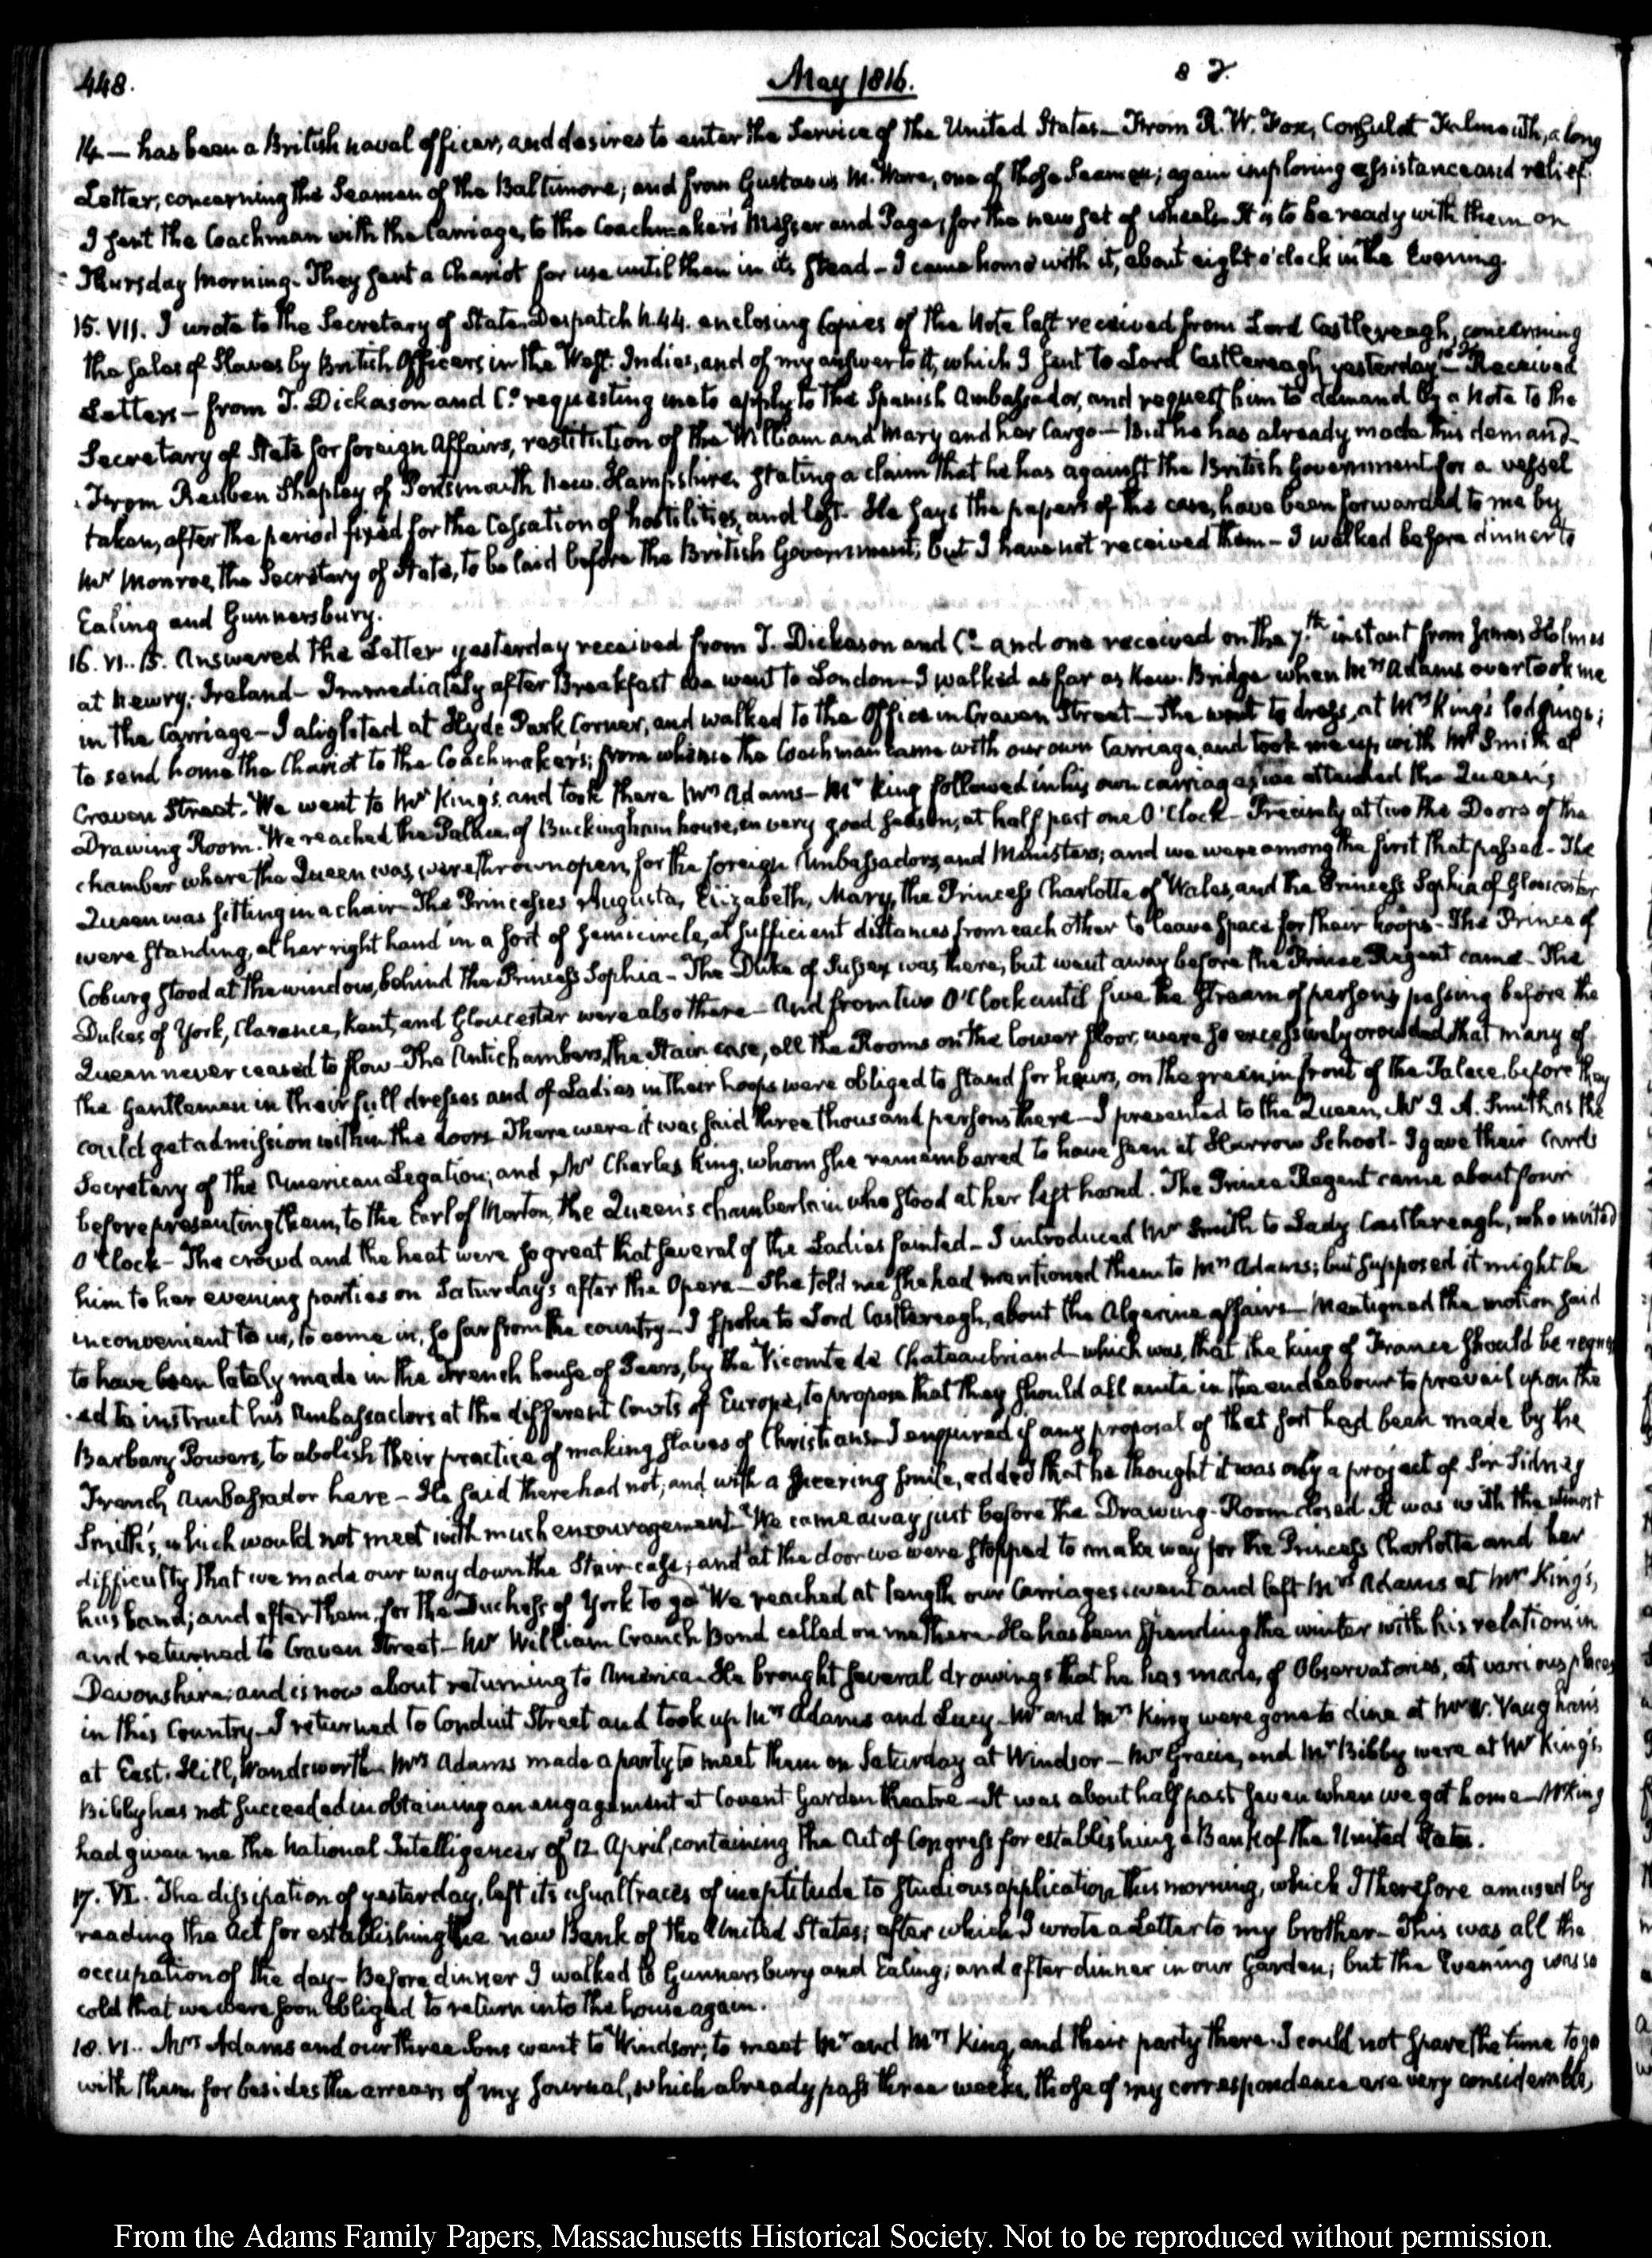 448.
May 1816.
14 — has been a British naval officer, and desires to enter the Service of the United States — From R. W. Fox, Consul at Falmouth, a long
Letter, concerning the Seamen of the Baltimore; and from Gustavus M. Ware, one of those Seamen; again imploring assistance and relief.
I sent the Coachman with the Carriage, to the Coachmaker's Messer and Page, for the new set of wheels. It is to be ready with them on
Thursday Morning. They sent a Chariot for use until then in its stead — I came home with it, about eight o'clock in the Evening.
15. VII. I wrote to the Secretary of State. Despatch N. 44. enclosing Copies of the Note last received from Lord Castlereagh, concerning
the sales of Slaves by British Officers in the West. Indies, and of my answer to it, which I sent to Lord Castlereagh yesterday — Received
Letters — from T. Dickason and Co. requesting me to apply to the Spanish Ambassador, and request him to demand by a Note to the
Secretary of State for foreign Affairs, restitution of the William and Mary and her Cargo — But he has already made this demand —
From Reuben Shapley of Portsmouth New. Hampshire, stating a claim that he has against the British Government for a vessel
taken, after the period fixed for the Cessation of hostilities, and lost. He says the papers of the case, have been forwarded to me by
Mr Monroe, the Secretary of State, to be laid before the British Government; but I have not received them — I walked before dinner to
Ealing and Gunnersbury.
16. VI.. 15. Answered the Letter yesterday received from T. Dickason and Co and one received on the 7.th instant from James Holmes
at Newry. Ireland — Immediately after Breakfast we went to London — I walked as far as Kew. Bridge when Mrs Adams overtook me
in the Carriage — I alighted at Hyde Park Corner, and walked to the Office in Craven Street — She went to dress, at Mrs King's lodgings;
to send home the Chariot to the Coachmaker's; from whence the Coachman came with our own Carriage, and took me up with Mr Smith at
Craven Street. We went to Mr King's, and took there Mrs Adams — Mr King followed in his own carriage, we attended the Queen's
Drawing Room. We reached the Palace, of Buckingham house, in very good season, at half past one O'Clock — Precisely at two the Doors of the
chamber where the Queen was, were thrown open, for the foreign Ambassadors, and Ministers; and we were among the first that passed — The
Queen was sitting in a chair — The Princesses Augusta, Elizabeth, Mary, the Princess Charlotte of Wales, and the Princess Sophia of Gloucester,
were standing, at her right hand in a sort of semicircle, at sufficient distances from each other to leave space for their hoops — The Prince of
Coburg stood at the window, behind the Princess Sophia — The Duke of Sussex was there, but went away before the Prince Regent came — The
Dukes of York, Clarence, Kent, and Gloucester were also there — And from two O'Clock until five the stream of persons passing before the
Queen never ceased to flow — The Antichambers, the Stair case, all the Rooms on the lower floor, were so excessively crowded that many of
the Gentlemen in their full dresses and of Ladies in their hoops were obliged to stand for hours, on the green, in front of the Palace, before they
could get admission within the doors. There were it was said three thousand persons there — I presented to the Queen, Mr J. A. Smith as the
Secretary of the American Legation; and Mr Charles King, whom she remembered to have seen at Harrow School — I gave their cards
before presenting them, to the Earl of Morton, the Queen's chamberlain who stood at her left hand. The Prince Regent came about four
O'Clock — The crowd and the heat were so great that several of the Ladies fainted — I introduced Mr Smith to Lady Castlereagh, who invited
him to her evening parties on Saturdays after the Opera — She told me she had mentioned them to Mrs Adams; but supposed it might be
inconvenient to us, to come in, so far from the country — I spoke to Lord Castlereagh, about the Algerine affairs — Mentioned the motion said
to have been lately made in the French house of Peers, by the Vicomte de Chateaubriand — which was, that the king of France should be reques
ed to instruct his Ambassadors at the different Courts of Europe, to propose that they should all unite in the endeabour to prevail upon the
Barbary Powers, to abolish their practice of making slaves of Christians — I enquired if any proposal of that sort had been made by the
French Ambassador here — He said there had not; and with a sneering smile, added that he thought it was only a project of Sir Sidney
Smith's, which would not meet with much encouragement — We came away just before the Drawing-Room closed. It was with the utmost
difficulty that we made our way down the Stair-case; and at the door we were stopped to make way for the Princess Charlotte and her
husband; and after them, for the Duchess of York to go. We reached at length our Carriages; went and left Mrs Adams at Mr King's,
and returned to Craven Street — Mr William Cranch Bond called on me there. He has been spending the winter with his relations in
Devonshire; and is now about returning to America — He brought several drawings that he has made, of Observatories, at various places
in this Country — I returned to Conduit Street and took up Mrs Adams and Lucy — Mr and Mrs King were gone to dine at Mr W. Vaughan's
at East. Hill, Wandsworth — Mrs Adams made a party to meet them on Saturday at Windsor — Mr Gracie, and Mr Bibby were at Mr King's,
Bibby has not succeeded in obtaining an engagement at Covent Garden theatre — It was about half past seven when we got home — Mr King
had given me the National Intelligencer of 12 April, containing the Act of Congress for establishing a Bank of the United States.
17. VI.. The dissipation of yesterday, left its usual traces of ineptitude to studious application this morning, which I therefore amused by
reading the Act for establishing the new Bank of the United States; after which I wrote a Letter to my brother — This was all the
occupation of the day — Before dinner I walked to Gunnersbury and Ealing; and after dinner in our Garden; but the Evening was so
cold that we were soon obliged to return into the house again.
18. VI.. Mrs Adams and our three Sons went to Windsor; to meet Mr and Mrs King, and their party there. I could not spare the time to go
with them, for besides the arrears of my Journal, which already pass three weeks, those of my correspondence are very considerable,
From the Adams Family Papers, Massachusetts Historical Society. Not to be reproduced without permission.